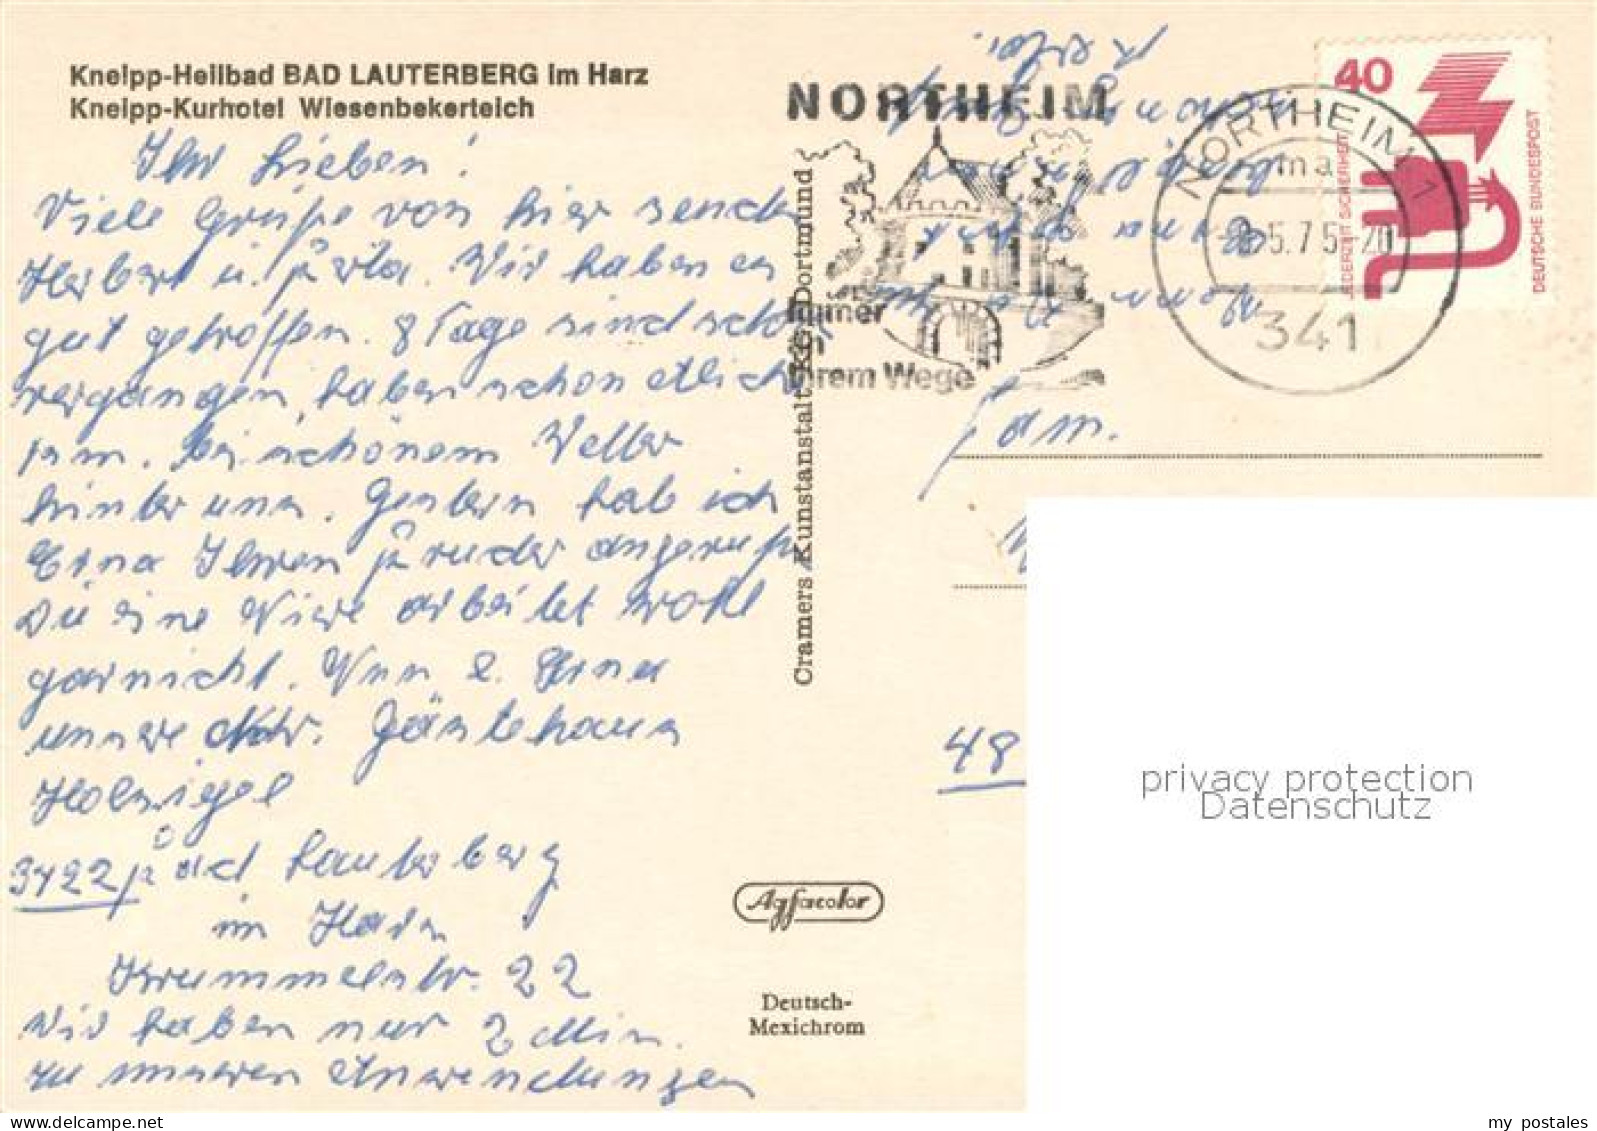 Kneipp-Heilbad BAD LAUTERBERG im Harz
Kneipp-Kurhotel Wiesenbekerteich
Ihr Lieben!
Viele Grüße von hier senden
Herbert u. Berta. Wir haben es
gut getroffen. 8 Tage sind schon
vergangen, haben schon etliche
km. bei schönem Wetter
hinter uns. Gestern hab ich
Ihren Bruder angerufen
Die eine Niere arbeitet wohl
garnicht. Nun
unsere Adr. Gästehaus
Holzriegel
3422 Bad Lauterberg
im Harz
Krummelstr. 22
Wir haben nur 2 Min.
zu unseren Anwendungen
Cramers Kunstanstalt KG Dortmund
Agfacolor
Deutsch-
Mexichrom
NORTHEIM
immer
in
Ihrem Wege
NORTHEIM 1
ma
5.75-20
341
40
JEDERZEIT SICHERHEIT
DEUTSCHE BUNDESPOST
Fam.
48
privacy protection
Datenschutz
my postales